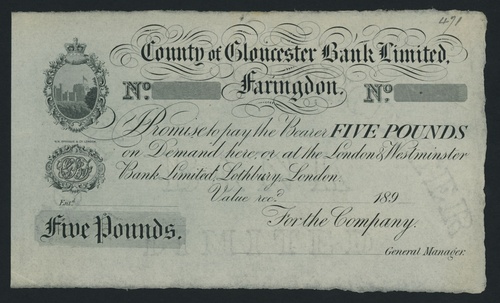 491
County of Gloucester Bank Limited,
Faringdon.
No. No.
I Promise to pay the Bearer FIVE POUNDS
on Demand here, or at the London & Westminster
Bank Limited, Lothbury, London.
Value rec.d 189
Ent.d
For the Company.
Five Pounds.
General Manager.